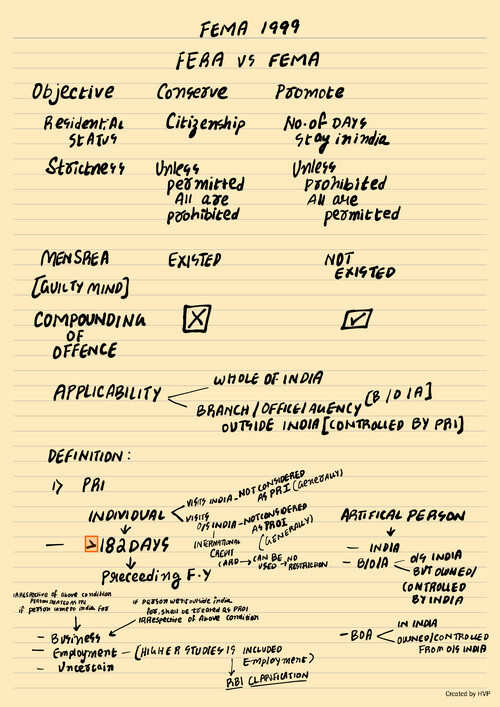 FEMA 1999
FERA VS FEMA
Objective Conserve Promote
Residential Status Citizenship No. of DAYS stay in india
Strictness Unless permitted All are prohibited Unless Prohibited All are permitted
MENSREA [GUILTY MIND] EXISTED NOT EXISTED
COMPOUNDING OF OFFENCE
APPLICABILITY
WHOLE OF INDIA
BRANCH/OFFICE/AGENCY [B/O/A]
OUTSIDE INDIA [CONTROLLED BY PRI]
DEFINITION:
1) PRI
INDIVIDUAL
VISITS INDIA - NOT CONSIDERED AS PRI (Generally)
VISITS O/S INDIA - NOT CONSIDERED AS PROI (GENERALLY)
INTERNATIONAL CREDIT CARD → CAN BE USED → NO RESTRICTION
— >182 DAYS
Preceeding F.Y
ARTIFICAL PERSON
- INDIA
- B/O/A
O/S INDIA
BUT OWNED/
CONTROLLED
BY INDIA
- BOA
IN INDIA
OWNED/CONTROLLED
FROM O/S INDIA
IRRespective of above condition
PERSON TREATED AS PRI
if person came to india for
if person went outside india
for, shall be treated as PROI
IRRespective of Above condition
- Business
- Employment - (HIGHER STUDIES IS INCLUDED
Employment)
- Uncertain
RBI CLARIFICATION
Created by HVP